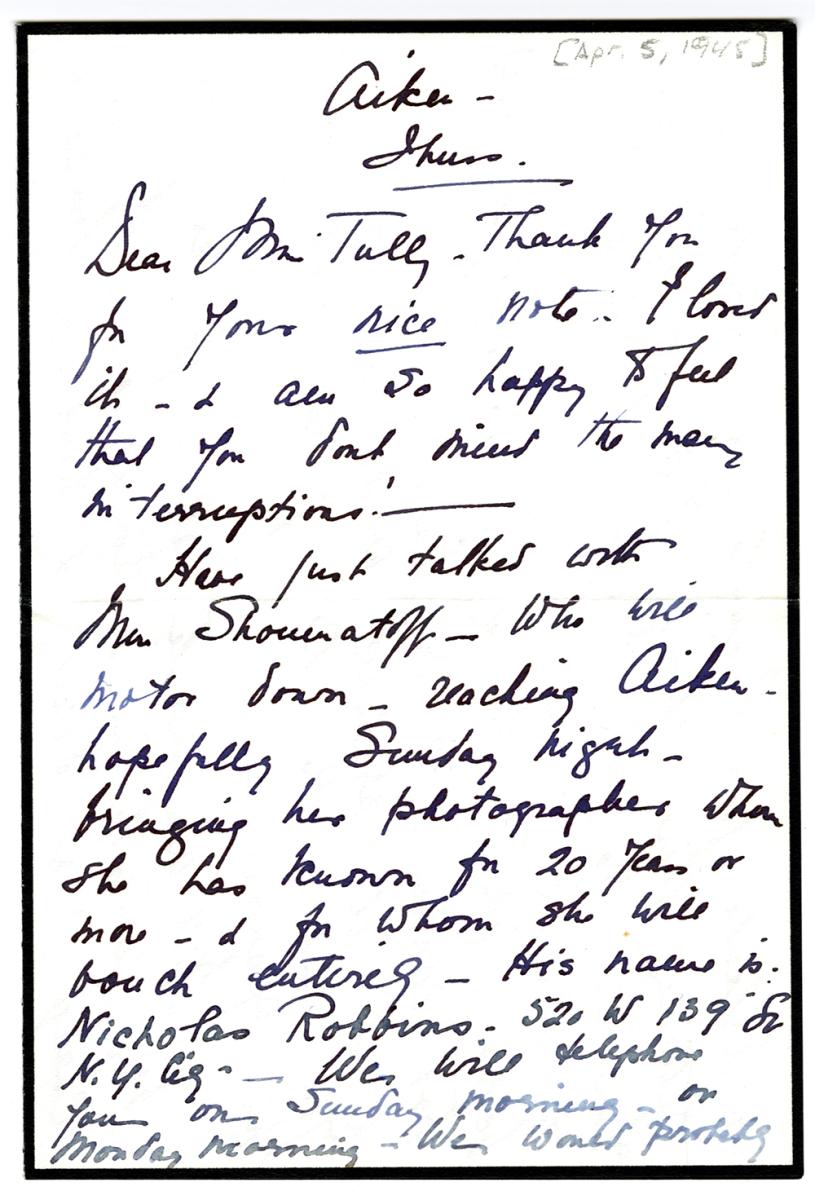 [Apr. 5, 1945]
Aiken –
Thurs.
Dear Miss Tully – Thank you
for your nice note – I loved
it – & am so happy to feel
that you dont mind the many
interruptions! –
Have just talked with
Mme Shoumatoff – who will
motor down – reaching Aiken –
hopefully Sunday night –
bringing her photographer whom
she has known for 20 years or
more – & for whom she will
vouch entirely – His name is:
Nicholas Robbins – 520 W 139 St
N.Y. City – We will telephone
you on Sunday morning – or
Monday morning – We would probably